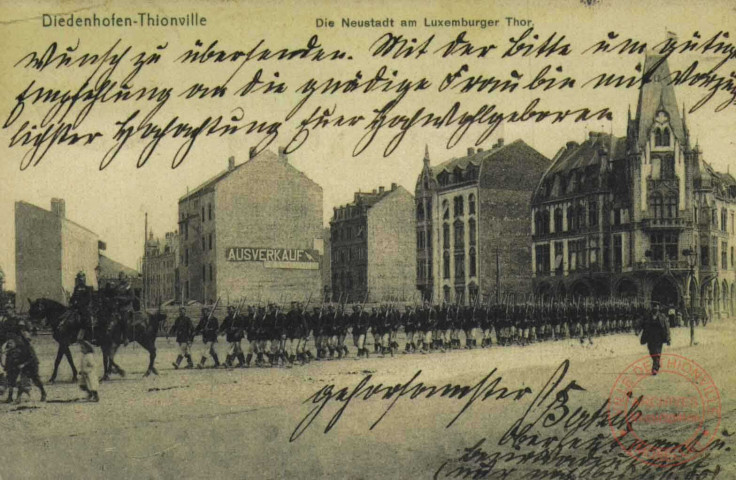 Diedenhofen-Thionville
Die Neustadt am Luxemburger Thor.
Wunsch zu übersenden. Mit der Bitte um gütige
Empfehlung an die gnädige Frau bin mit vorzüg-
lichster Hochachtung Euer Hochwohlgeboren
AUSVERKAUF
gehorsamster
Oberleutnant u.